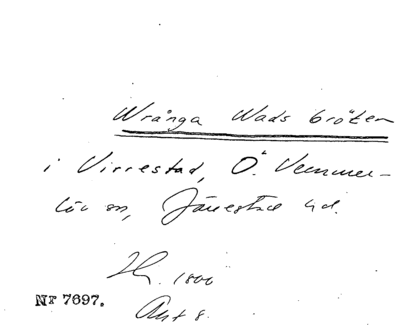 Wrånga Wads bröten
i Virrestad, Ö. Vemmer-
löv sn, Järrestad hd.
1800
NF 7697.
Akt 8.